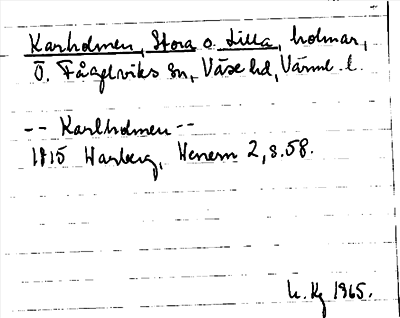 Karholmen, Stora o. Lilla, holmar,
Ö. Fågelviks sn, Väse hd, Värml. l.
-- Karlholmen --
1815 Warberg, Wenern 2, s. 58.
1965.